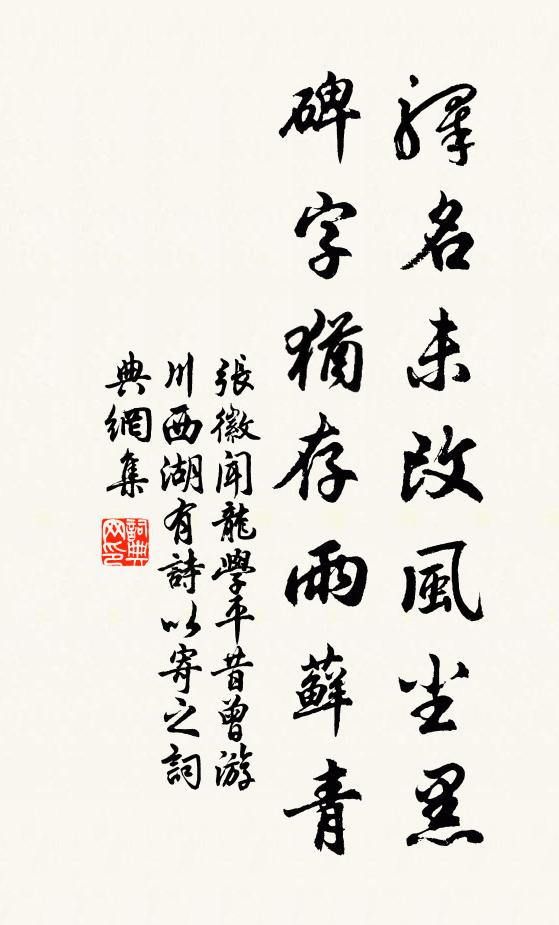 驛名未改風尘黑
碑字猶存雨蘚青
張徽聞龍學平昔曾游
川西湖有詩以寄之詞
典網集
詞典
网印